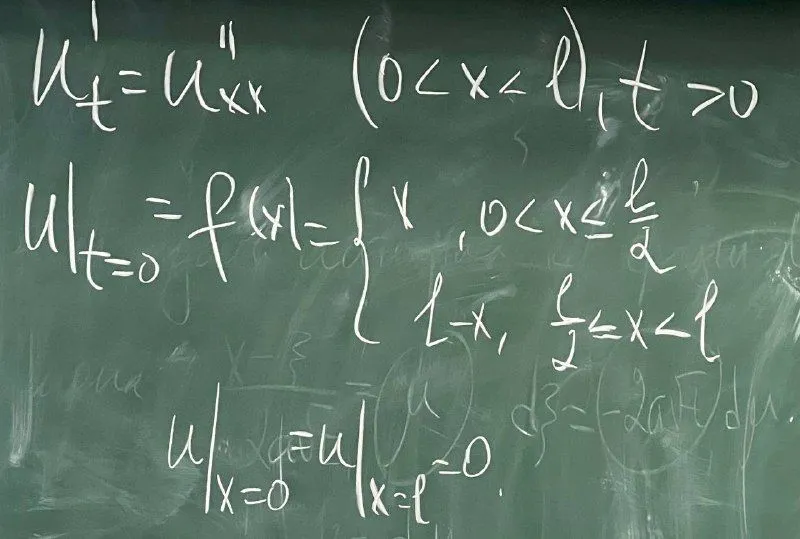 u'ₜ = u''ₓₓ (0 < x < l), t > 0
u|ₜ₌₀ = f(x) = { x, 0 < x ≤ l/2
l-x, l/2 ≤ x < l
u|ₓ₌₀ = u|ₓ₌ₗ = 0.